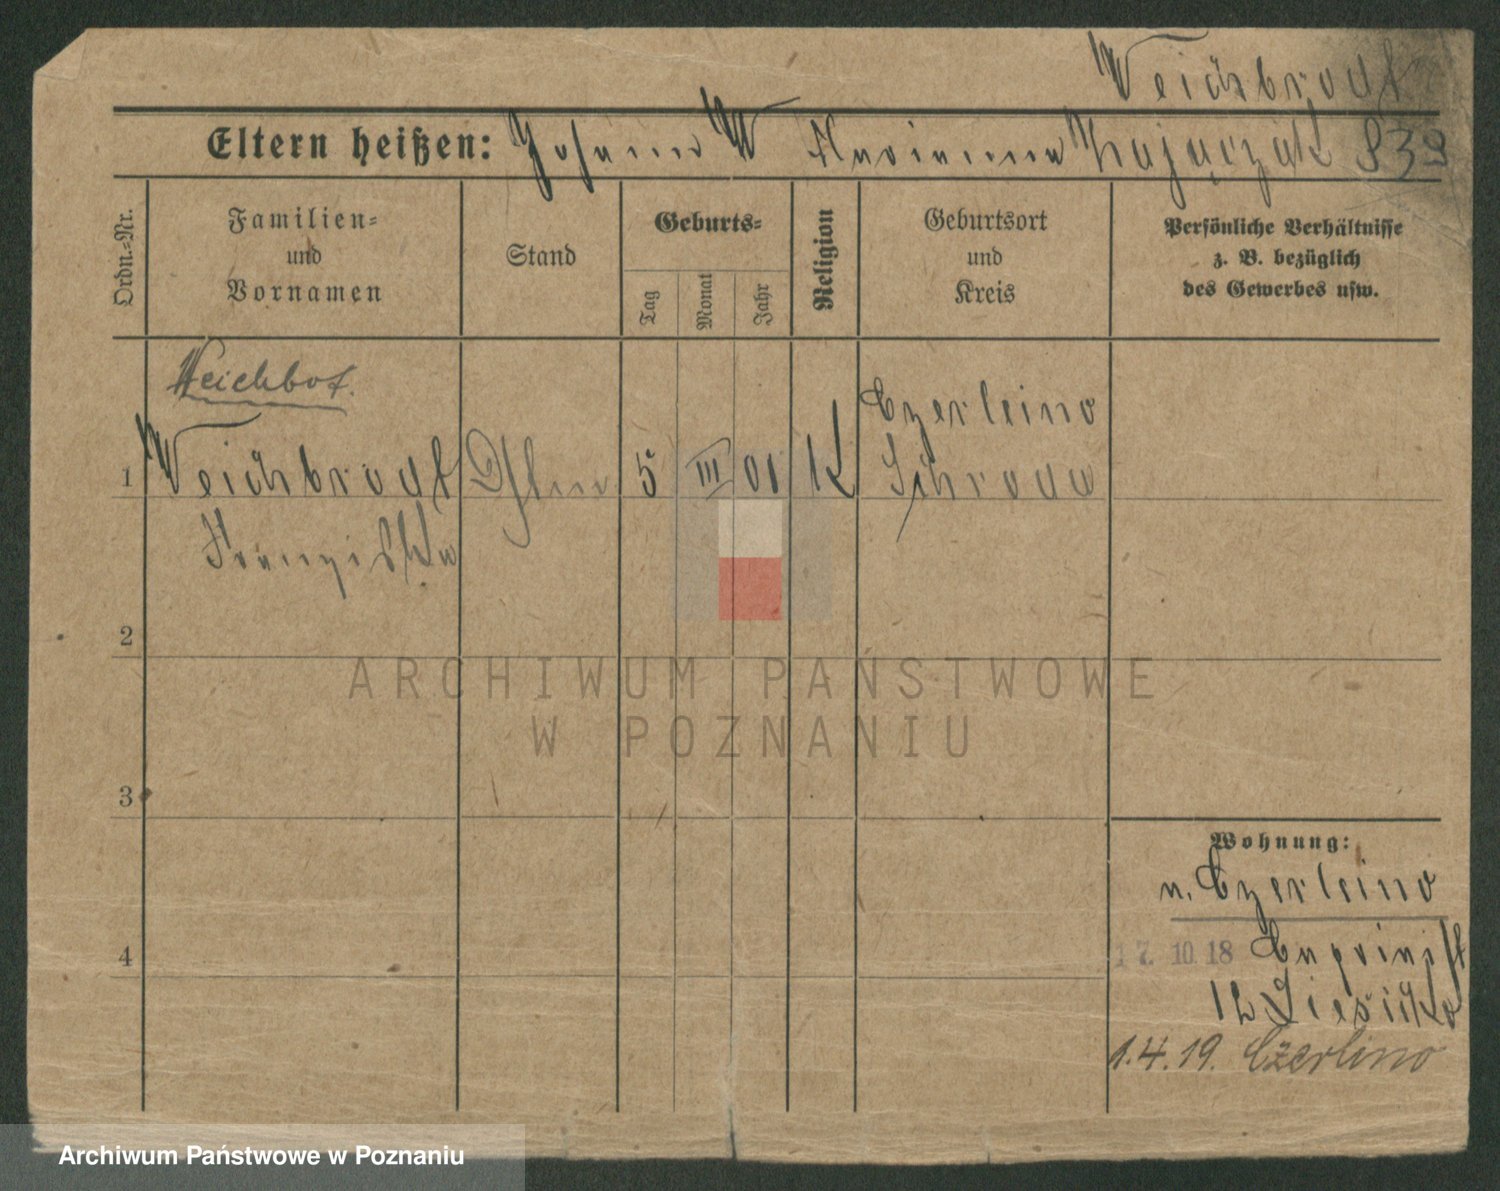 Weichbrodt
Eltern heißen: Johann W Marianna Kajączak 839
Ordn.-Nr.
Familien-
und
Vornamen
Stand
Geburts-
Tag
Monat
Jahr
Religion
Geburtsort
und
Kreis
Persönliche Verhältnisse
z. B. bezüglich
des Gewerbes usw.
Weichbot.
1 Weichbrodt 5 III 01 K Czerleino
Schroda
Franziska
2
3
4
Wohnung:
n. Czerleino
17. 10. 18
12
1.4.19. Czerlino
ARCHIWUM PAŃSTWOWE
W POZNANIU
Archiwum Państwowe w Poznaniu